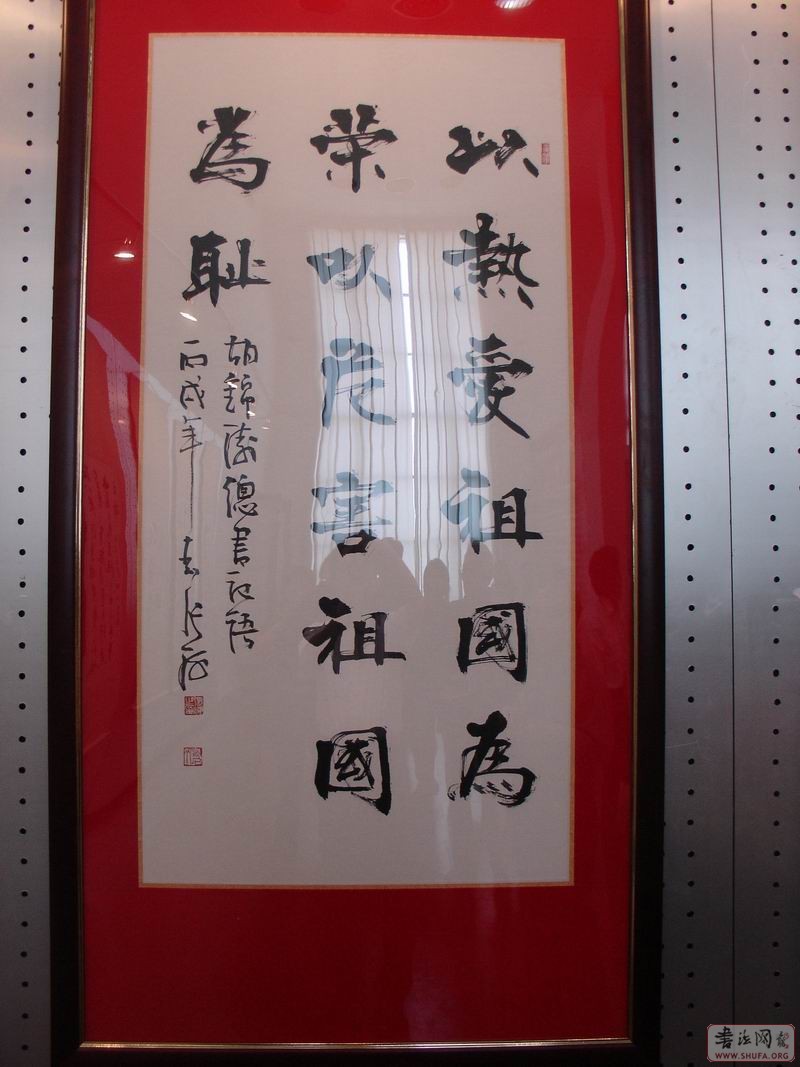 以熱愛祖國為
榮以危害祖國
為耻
胡錦濤總書記語
丙戌年
書法网
WWW.SHUFA.ORG